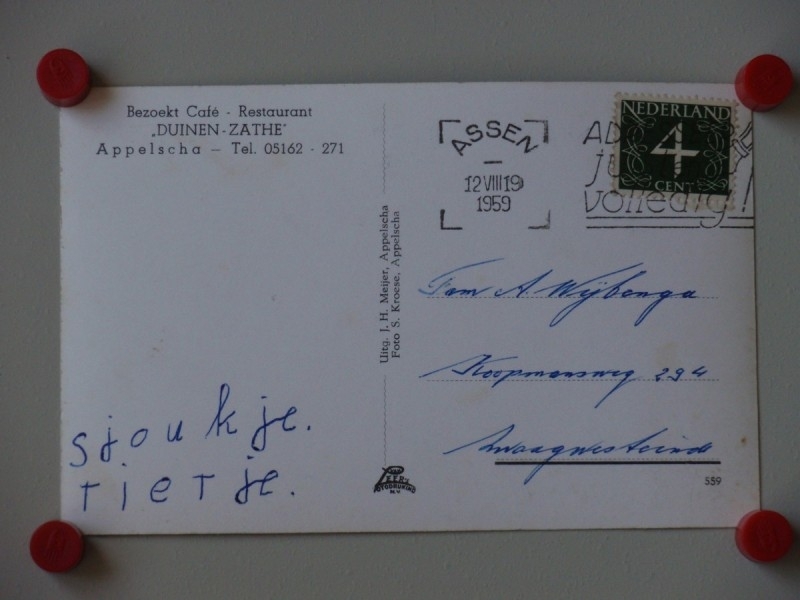 Bezoekt Café - Restaurant
„DUINEN-ZATHE"
Appelscha — Tel. 05162 - 271
Uitg. J. H. Meijer, Appelscha
Foto S. Kroese, Appelscha
ASSEN
12 VIII 19
1959
volledig!
NEDERLAND
4
CENT
Fam A. Wijbenga
Koopmansweg 294
Zwaagwesteinde
sjoukje.
rietje.
559